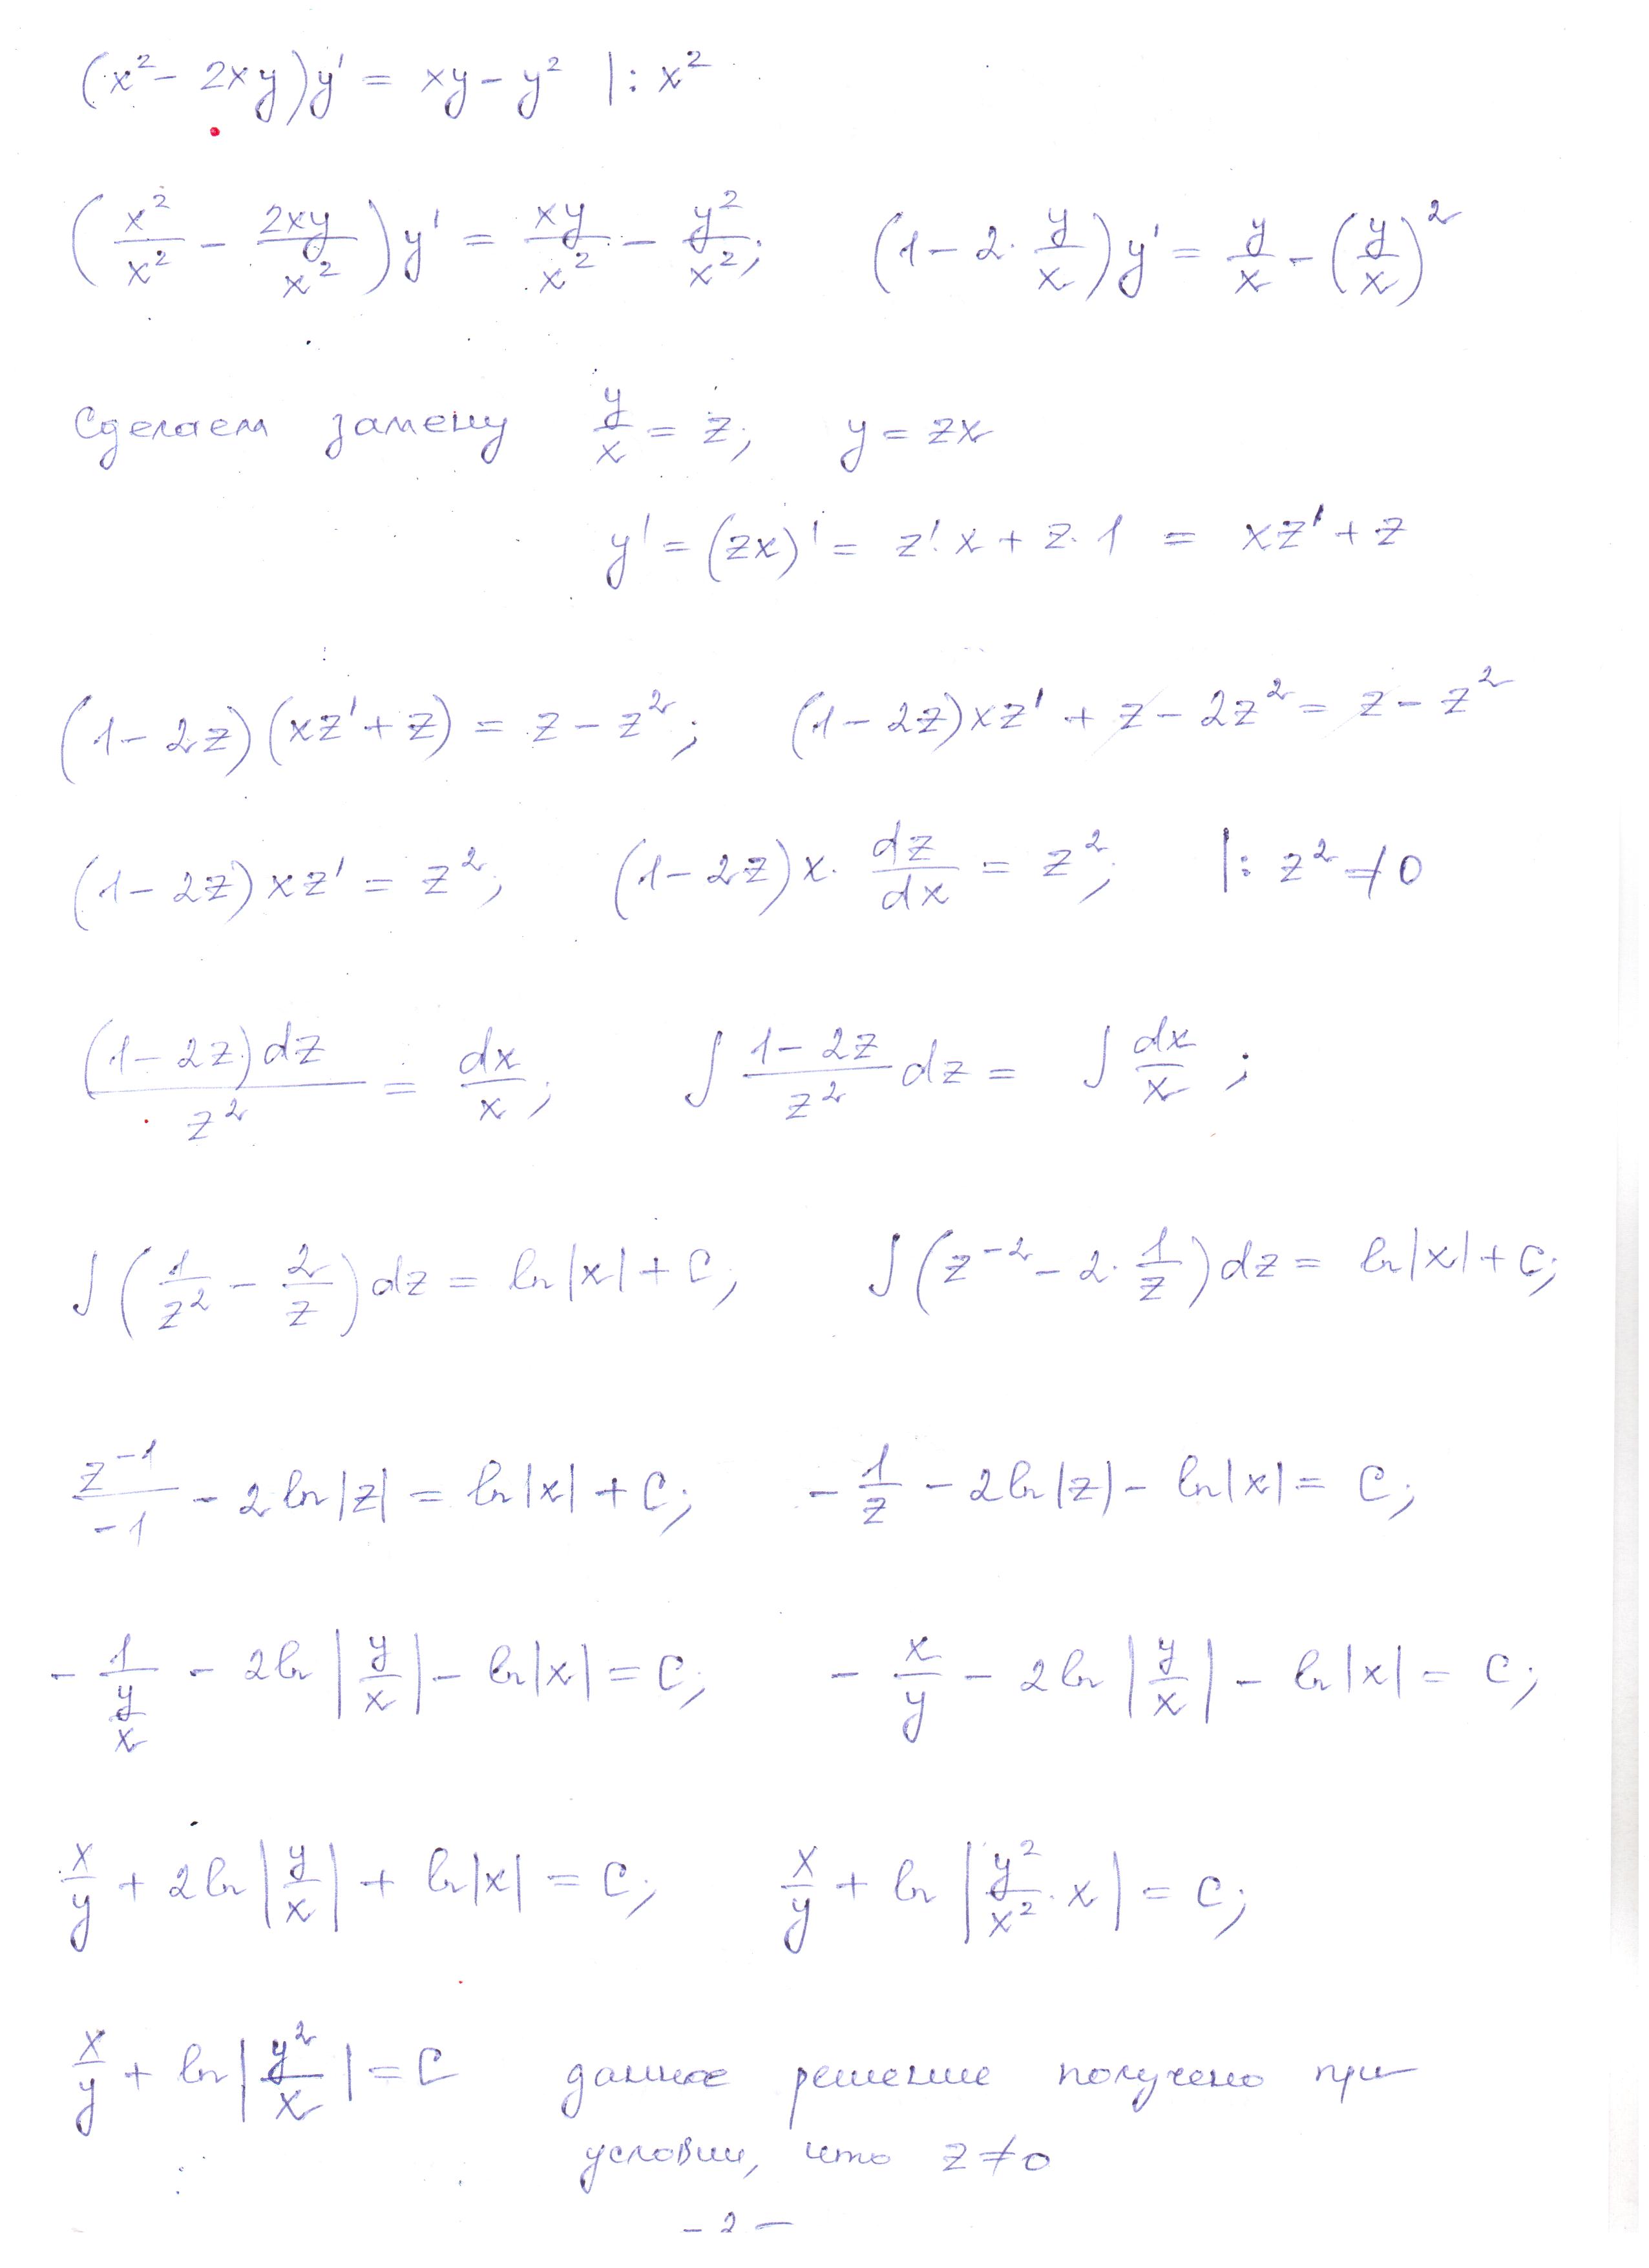 (x² - 2xy)y' = xy - y² |: x²
(x²/x² - 2xy/x²)y' = xy/x² - y²/x²; (1 - 2·y/x)y' = y/x - (y/x)²
Сделаем замену y/x = z; y = zx
y' = (zx)' = z'·x + z·1 = xz' + z
(1 - 2z)(xz' + z) = z - z²; (1 - 2z)xz' + z - 2z² = z - z²
(1 - 2z)xz' = z²; (1 - 2z)x·dz/dx = z²; |: z² ≠ 0
(1 - 2z)dz/z² = dx/x; ∫ (1 - 2z)/z² dz = ∫ dx/x;
∫(1/z² - 2/z)dz = ln|x| + C; ∫(z⁻² - 2·1/z)dz = ln|x| + C;
z⁻¹/-1 - 2ln|z| = ln|x| + C; - 1/z - 2ln|z| - ln|x| = C;
- 1/(y/x) - 2ln|y/x| - ln|x| = C; - x/y - 2ln|y/x| - ln|x| = C;
x/y + 2ln|y/x| + ln|x| = C; x/y + ln|y²/x²·x| = C;
x/y + ln|y²/x| = C данное решение получено при
условии, что z ≠ 0
- 2 -